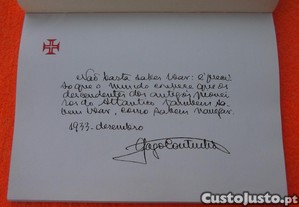 Não basta saber voar: é preci-
so que o mundo conheça que os
descendentes dos antigos pionei-
ros do Atlântico também sa-
bem voar, como sabem navegar.
1933-dezembro
Gago Coutinho
CustoJusto.pt